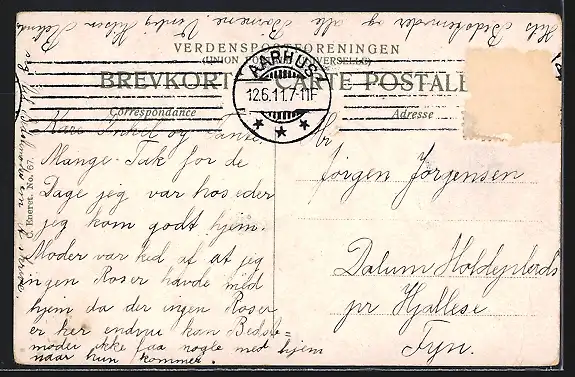 Hils Bedstemoder og alle Børnene Venlig Hilsen
VERDENSPOSTFORENINGEN
(UNION POSTALE UNIVERSELLE)
BREVKORT CARTE POSTALE
Correspondance
Adresse
AARHUS
12.6.11.7-11F
Kære Onkel og Tante
Mange Tak for de
Dage jeg var hos eder
jeg kom godt hjem.
Moder var ked af at jeg
ingen Roser havde med
hjem da der ingen Roser
er her endnu kan Bedste=
moder ikke faa nogle med hjem
naar hun kommer.
Hr
Jörgen Jörgensen
Dalum
pr Hjallese
Fyn.
C. Eneret. No. 67.